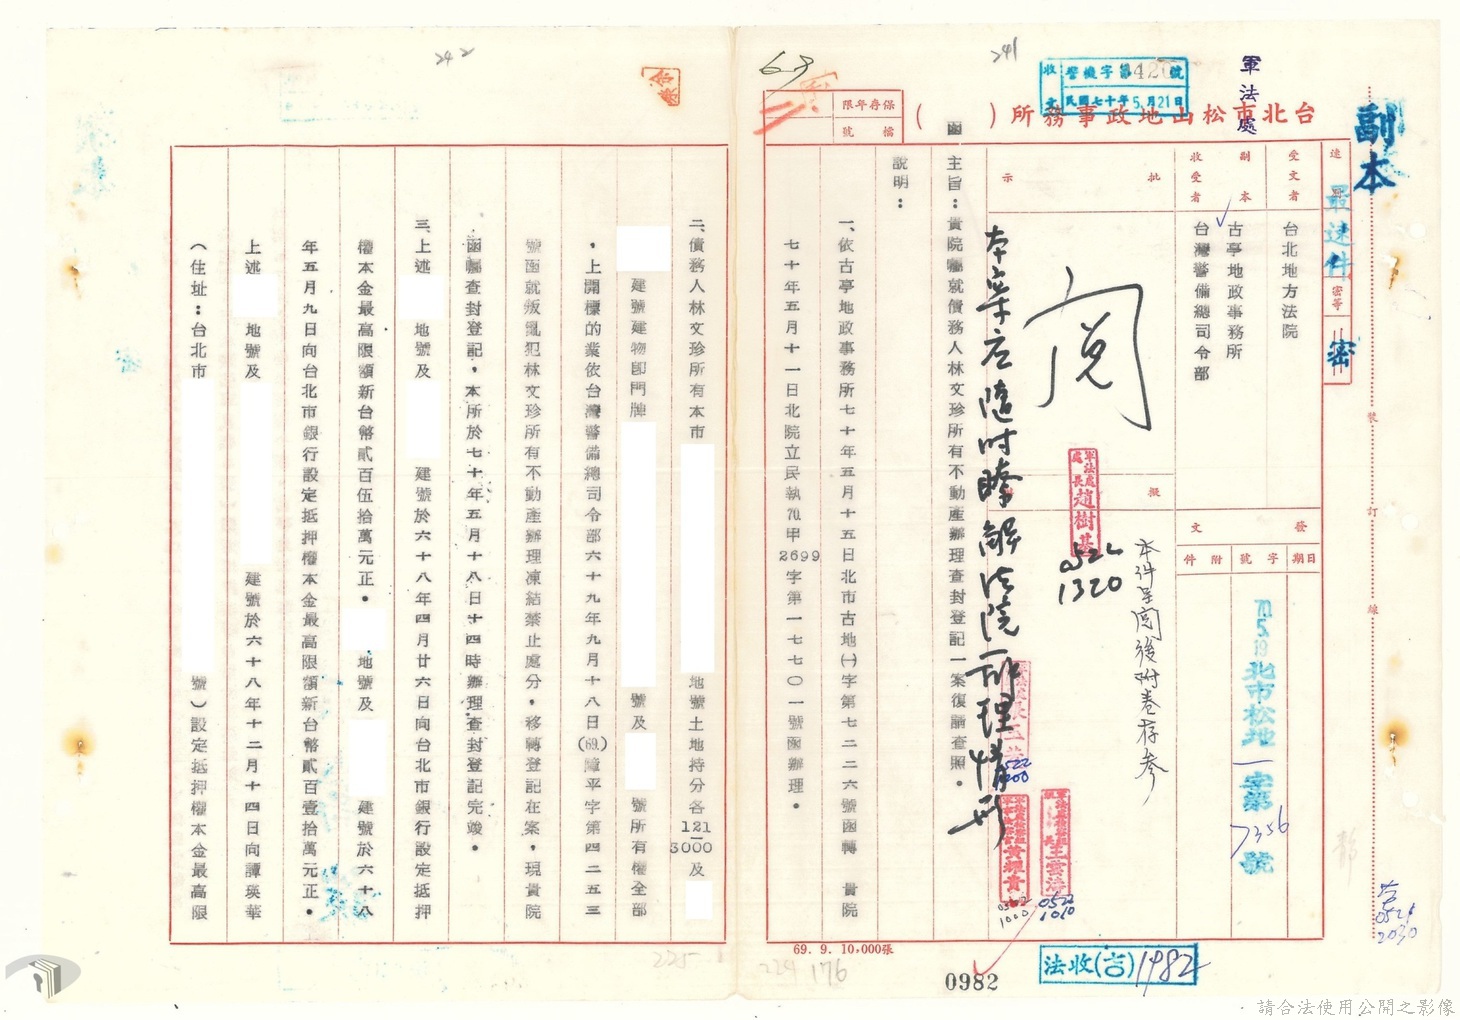 副本
軍法處
收文
警機字第420號
民國七十年5月21日
台北市松山地政事務所（　　）函
保存年限
檔號
速別
最速件
密等
密
受文者
台北地方法院
副本收受者
古亭地政事務所
台灣警備總司令部
批示
閱
擬辦
發文
日期
字號
附件
70.5.19
北市松地一字第7356號
本件呈閱後附卷存參
本案应隨时瞭解法院辦理情形
軍法處處長趙樹基
0522
1320
0522
1010
主旨：貴院囑就債務人林文珍所有不動產辦理查封登記一案復請查照。
說明：
一、依古亭地政事務所七十年五月十五日北市古地㈠字第七二二六號函轉　貴院
七十年五月十一日北院立民執70.甲2699字第一七七〇一號函辦理。
二、債務人林文珍所有本市　地號土地持分各121/3000及
建號建物即門牌　號及　號所有權全部
，上開標的業依台灣警備總司令部六十九年九月十八日(69.)障平字第四二五三
號函就叛亂犯林文珍所有不動產辦理凍結禁止處分，移轉登記在案，現貴院
函囑查封登記，本所於七十年五月十八日十四時辦理查封登記完竣。
三、上述　地號及　建號於六十八年四月廿六日向台北市銀行設定抵押
權本金最高限額新台幣貳百伍拾萬元正。　地號及　建號於六十八
年五月九日向台北市銀行設定抵押權本金最高限額新台幣貳百壹拾萬元正。
上述　地號及　建號於六十八年十二月十四日向譚瑛華
（住址：台北市　號）設定抵押權本金最高限
裝
訂
線
69. 9. 10,000張
0982
法收(吉)1982
0521
2030
241
242
225
224
176
請合法使用公開之影像